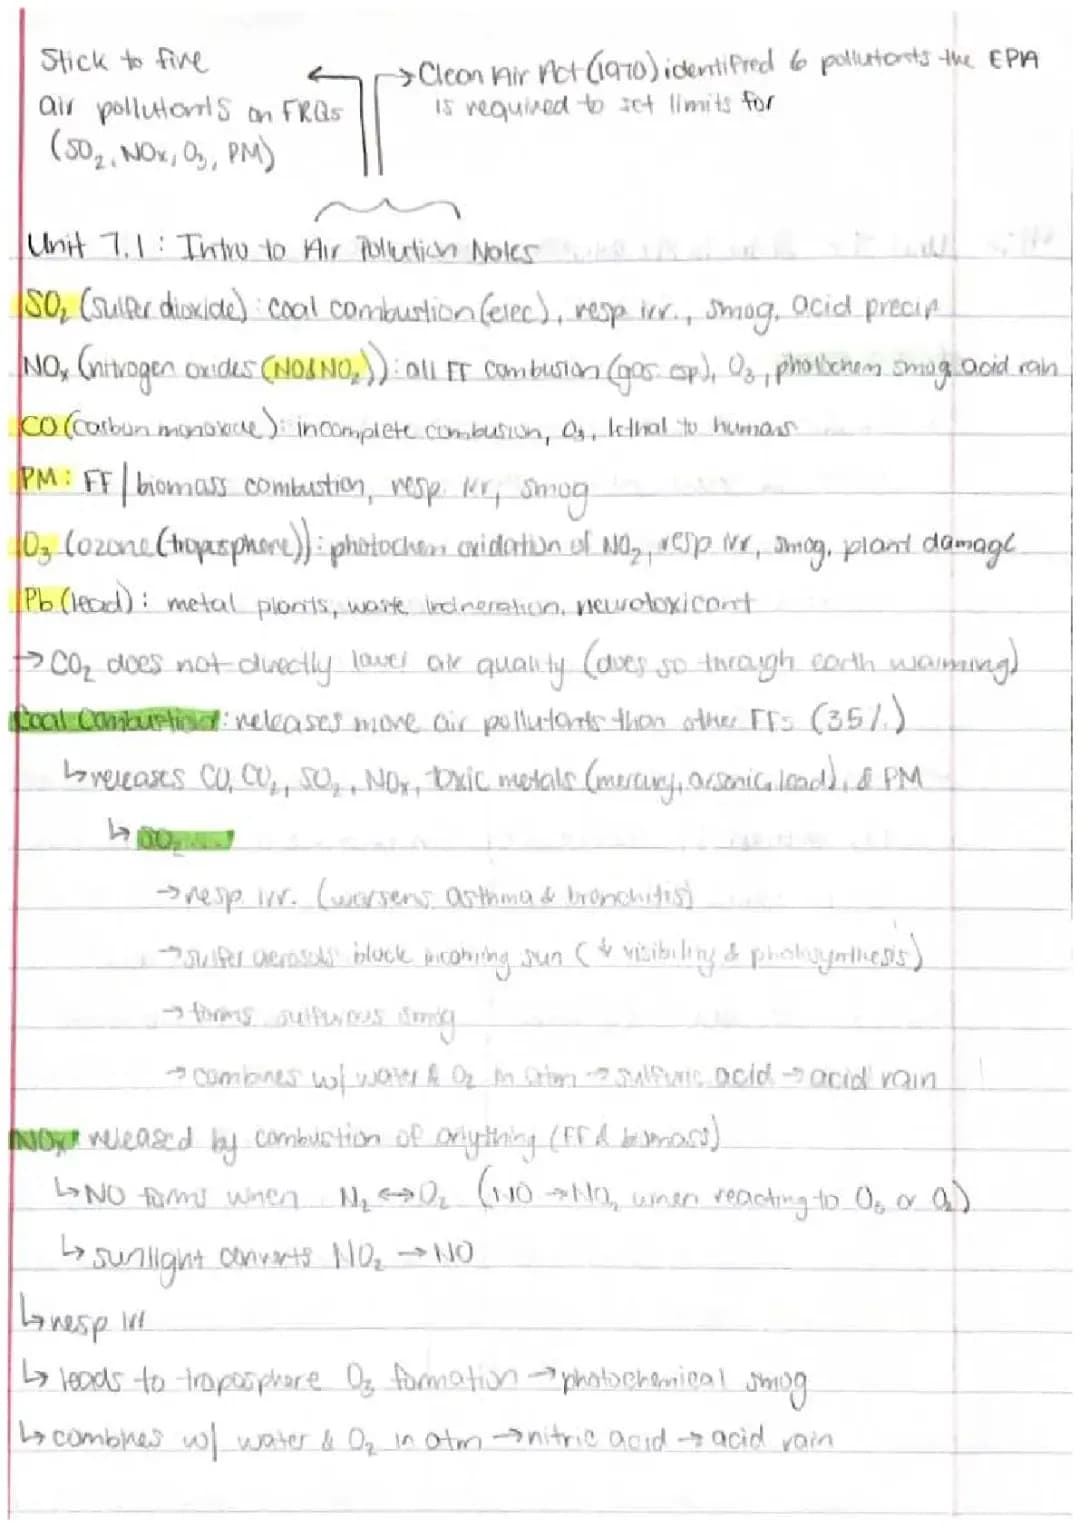 Stick to five
air pollutants on FRQs
(SO₂, NOx, O₃, PM)
→ Clean Air Act (1970) identified 6 pollutants the EPA
is required to set limits for
Unit 7.1: Intro to Air Pollution Notes
SO₂ (sulfer dioxide): coal combustion (elec), resp irr., smog, acid precip
NOx (nitrogen oxides (NO & NO₂)): all FF combusion (gas esp), O₃, photochem smog acid rain
CO (carbon monoxide): incomplete combusion, O₃, lethal to humans
PM: FF/biomass combustion, resp irr, smog
O₃ (ozone (troposphere)): photochem oxidation of NO₂, resp irr, smog, plant damage
Pb (lead): metal plants, waste incineration, neurotoxicant
→ CO₂ does not directly lower air quality (does so through earth warming)
Coal Combustion: releases more air pollutants than other FFs (35%)
↳ releases CO, CO₂, SO₂, NOx, toxic metals (mercury, arsenic, lead), & PM
↳ SO₂
→ resp irr. (worsens asthma & bronchitis)
→ sulfer aerosols block incoming sun (↓ visibility & photosynthesis)
→ forms sulfurous smog
→ combines w/ water & O₂ in atm → sulfuric acid → acid rain
NOx released by combustion of anything (FF & biomass)
↳ NO forms when N₂ ↔ O₂ (NO → NO₂ when reacting to O₃ or O₂)
↳ sunlight converts NO₂ → NO
↳ resp irr
↳ leads to troposphere O₃ formation → photochemical smog
↳ combines w/ water & O₂ in atm → nitric acid → acid rain